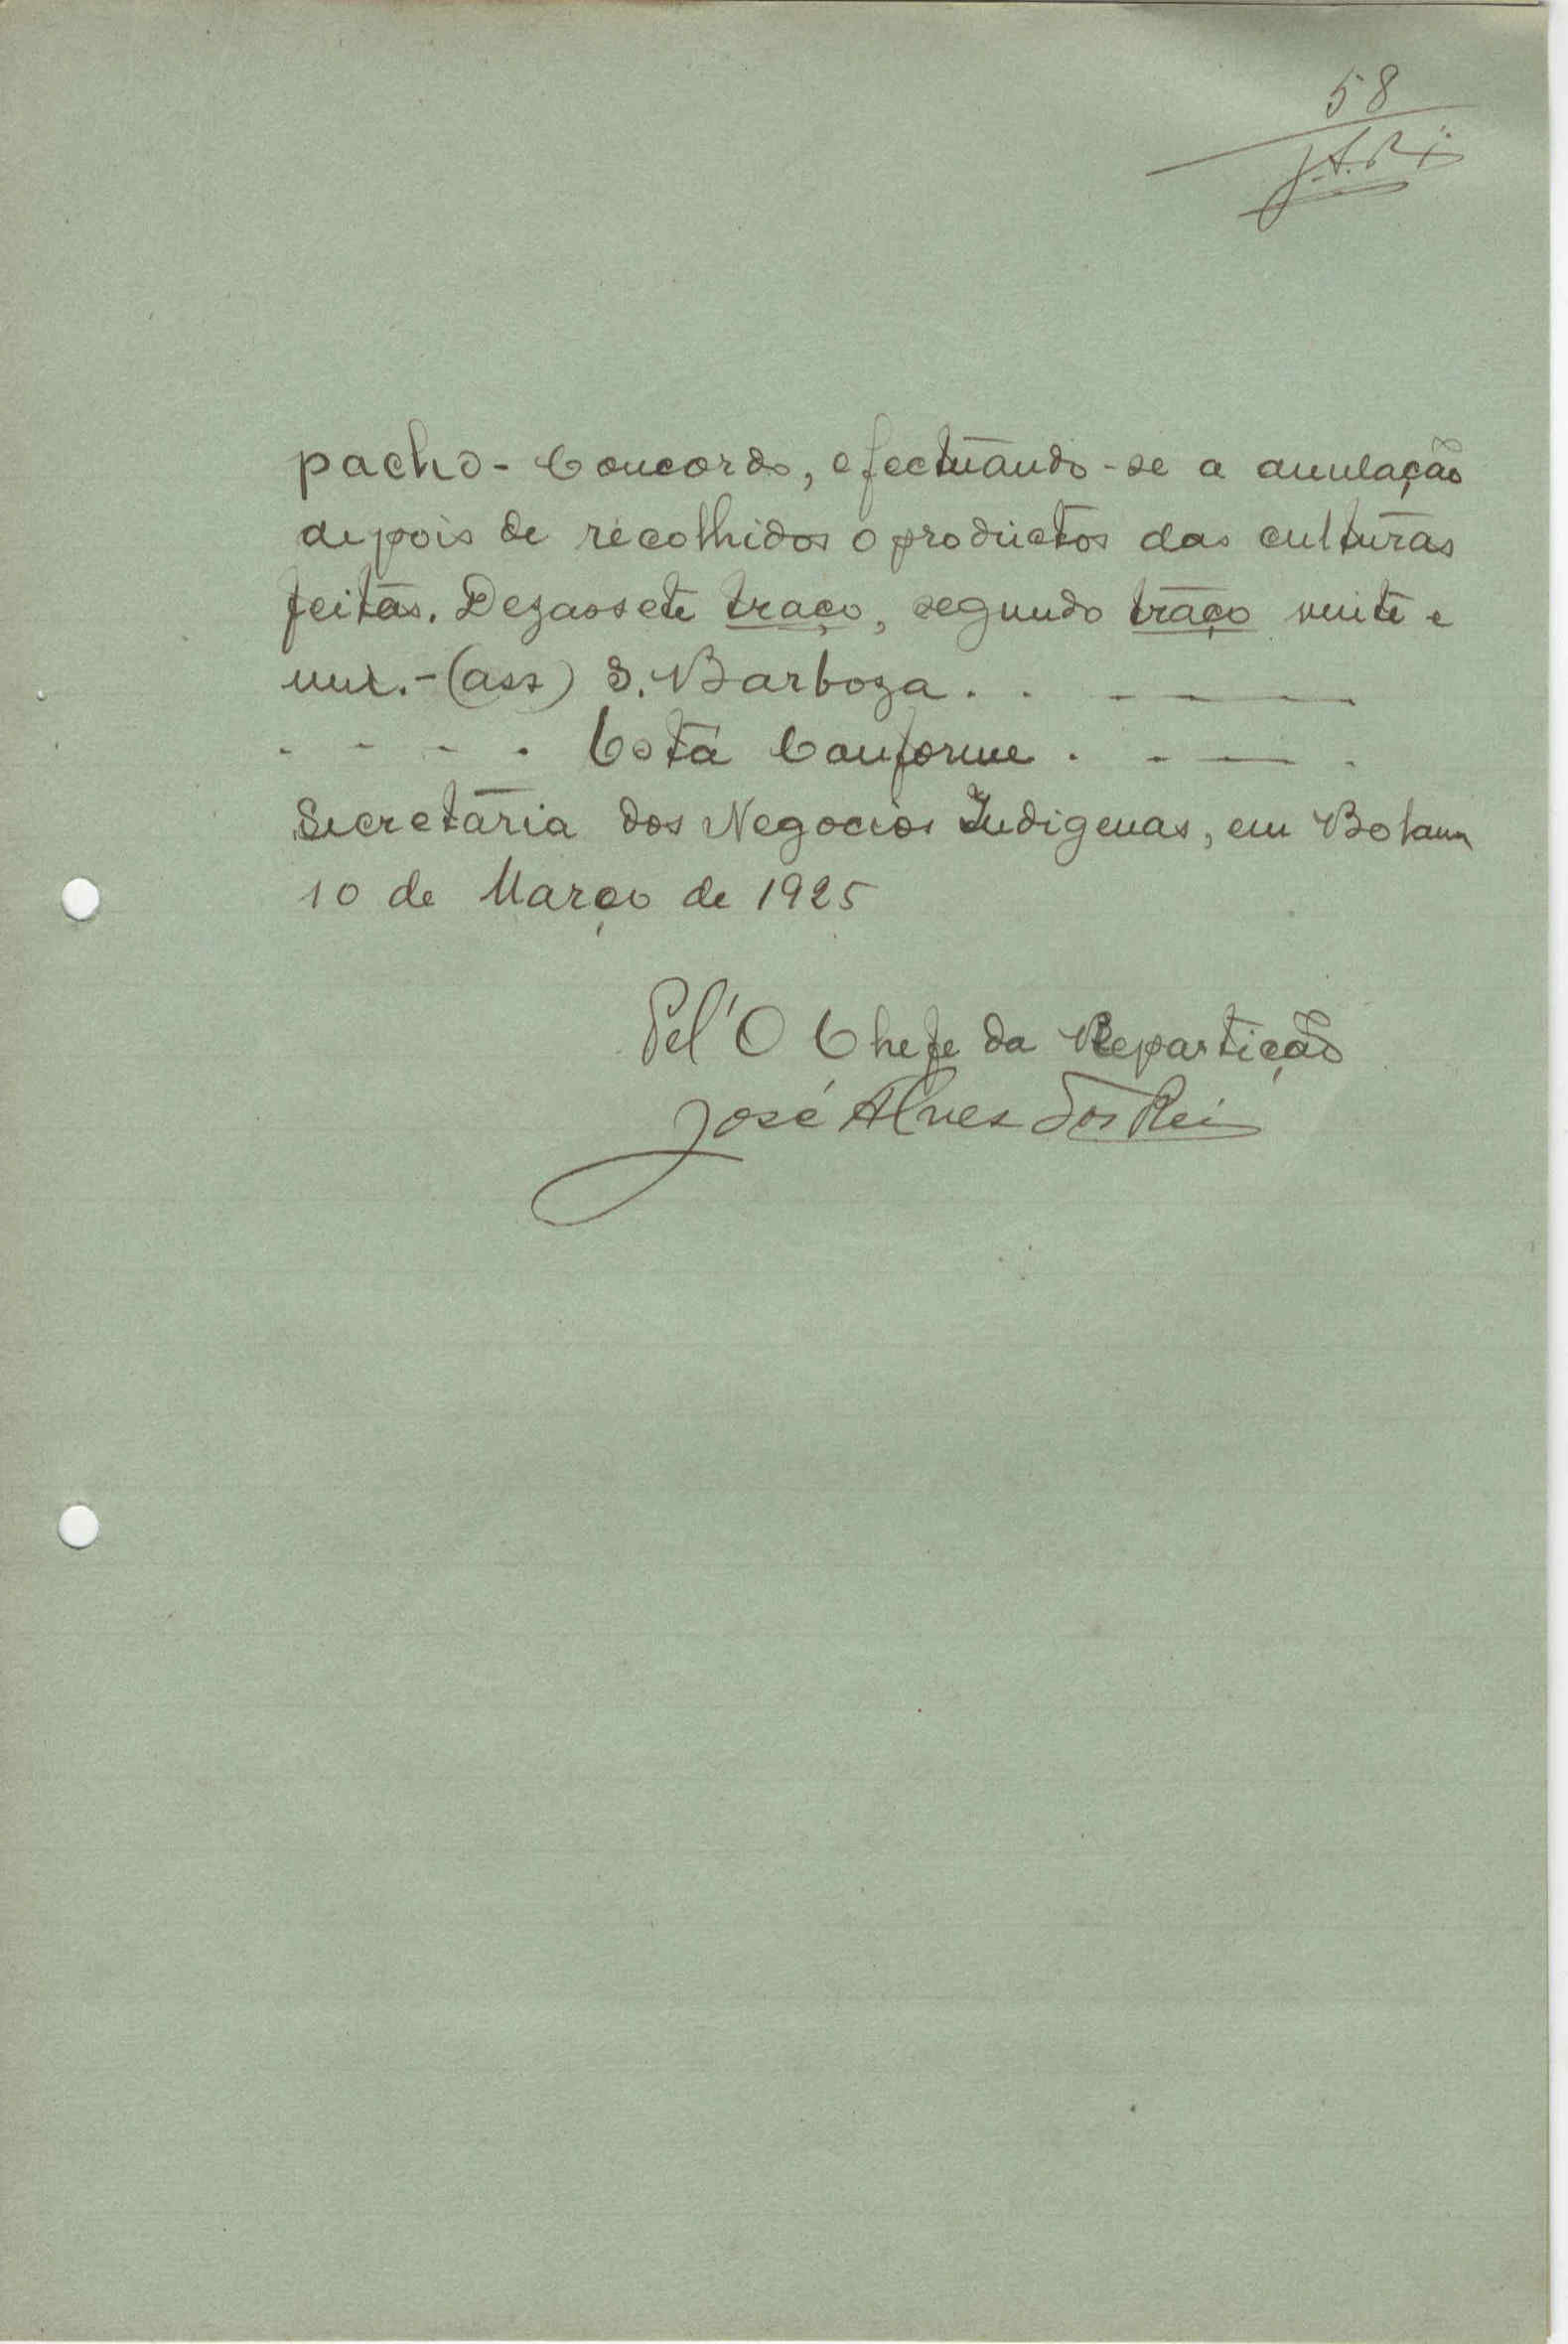 58
J.A.Rei
pacho - Concordo, efectuando-se a anulação
depois de recolhidos o productos das culturas
feitas. Dezassete traço, segundo traço vinte e
um. - (ass) S. Barboza. . - — —
- - - . Está Conforme . - — .
Secretaria dos Negocios Indigenas, em Bolama
10 de Março de 1925
Pel'O Chefe da Repartição
José Alves dos Reis